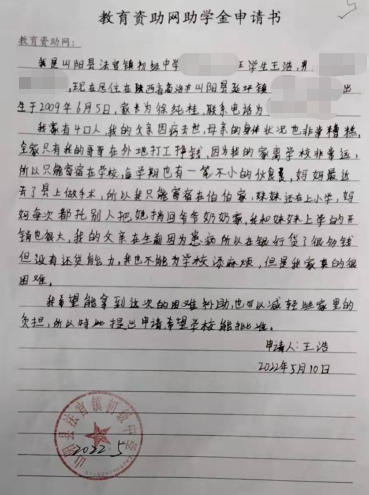 教育资助网助学金申请书
教育资助网：
我是山阳县法官镇初级中学 王学生王浩，男
，现在居住在陕西省商洛市山阳县 出
生于2009年6月5日，家长为徐纯桂，联系电话为
我家有4口人，我的父亲因病去世，母亲的身体状况也非常糟糕，
全家只有我的哥哥在外地打工挣钱，因为我的家离学校非常远，
所以只能寄宿在学校，每学期也有一笔不小的伙食费，妈妈最近
去了县上做手术，所以我只能寄宿在伯伯家，妹妹还在上小学，妈
妈每次都托别人把她捎回爷爷奶奶家，我和妹妹上学的开
销也很大，我的父亲在生前因为患病所以在银行贷了很多钱
但没有还贷能力，我也不能为学校添麻烦，但是我家真的很
困难。
我希望能拿到这次的困难补助，也可以减轻些家里的
负担，所以特此提出申请希望学校能批准。
申请人：王浩
2022年5月10日
山阳县法官镇初级中学
2022.5